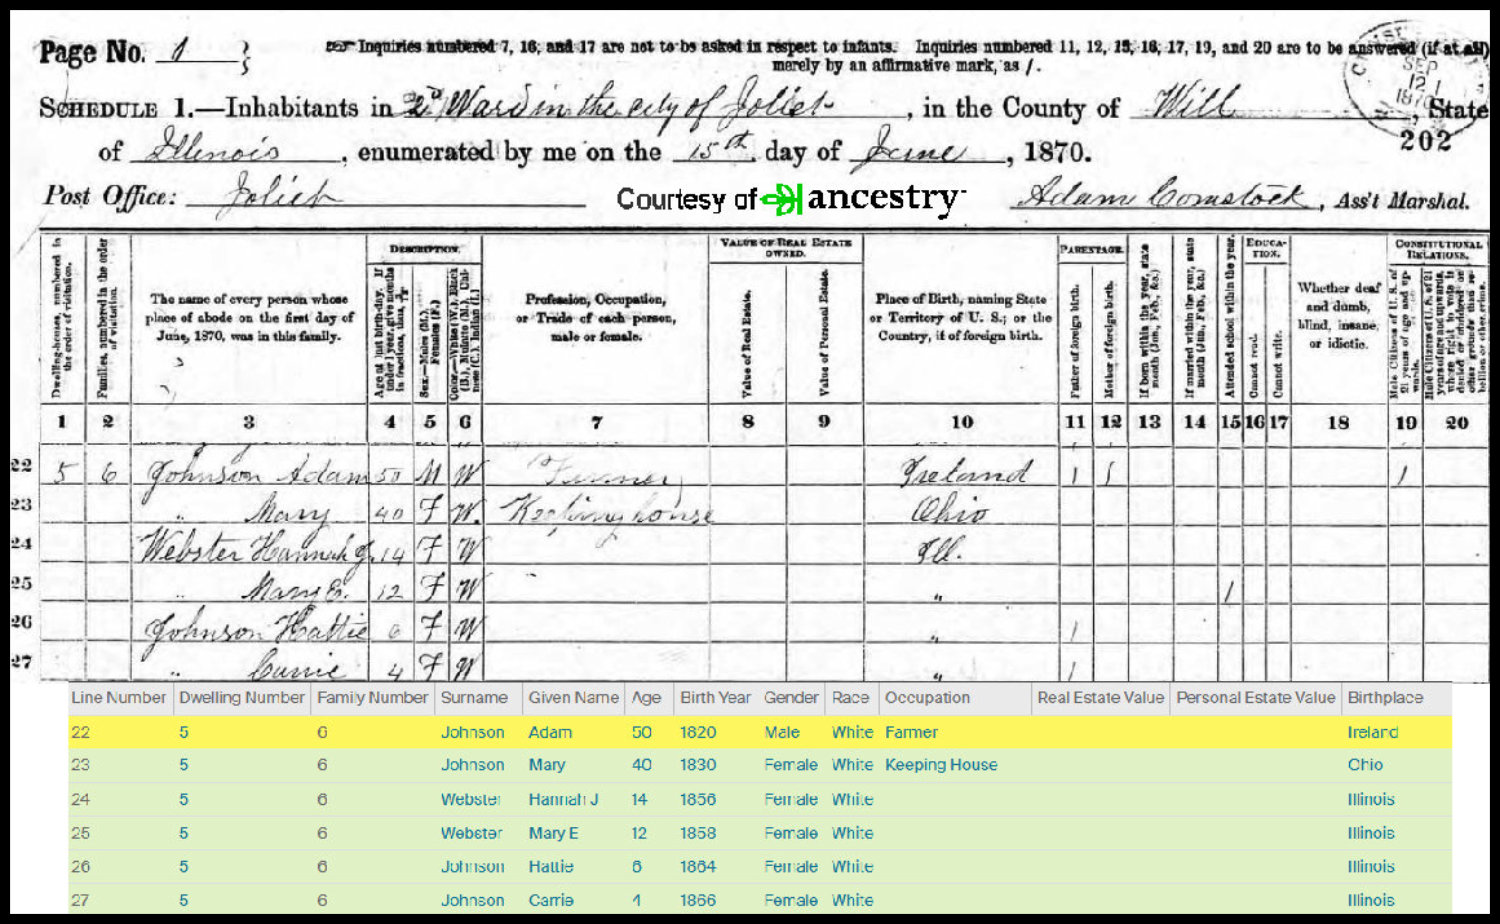 Page No. 1
Inquiries numbered 7, 16, and 17 are not to be asked in respect to infants. Inquiries numbered 11, 12, 15, 16, 17, 19, and 20 are to be answered (if at all)
merely by an affirmative mark, as /.
SCHEDULE 1.—Inhabitants in 2d Ward in the city of Joliet, in the County of Will, State
SEP 12 1870
202
of Illinois, enumerated by me on the 15th day of June, 1870.
Post Office: Joliet
Courtesy of ancestry
Adam Comstock, Ass't Marshal.
Dwelling-houses, numbered in the order of visitation.
Families, numbered in the order of visitation.
The name of every person whose place of abode on the first day of June, 1870, was in this family.
DESCRIPTION.
Age at last birth-day. If under 1 year, give months in fractions, thus,
Sex.—Males (M.), Females (F.)
Color.—White (W.), Black (B.), Mulatto (M.), Chinese (C.), Indian (I.)
Profession, Occupation, or Trade of each person, male or female.
VALUE OF REAL ESTATE OWNED.
Value of Real Estate.
Value of Personal Estate.
Place of Birth, naming State or Territory of U. S.; or the Country, if of foreign birth.
PARENTAGE.
Father of foreign birth.
Mother of foreign birth.
If born within the year, state month (Jan., Feb., &c.)
If married within the year, state month (Jan., Feb., &c.)
Attended school within the year.
EDUCATION.
Cannot read.
Cannot write.
Whether deaf and dumb, blind, insane, or idiotic.
CONSTITUTIONAL RELATIONS.
Male Citizens of U. S. of 21 years of age and upwards.
Male Citizens of U. S. of 21 years of age and upwards, whose right to vote is denied or abridged on other grounds than rebellion or other crime.
1 2 3 4 5 6 7 8 9 10 11 12 13 14 15 16 17 18 19 20
22 5 6 Johnson Adam 50 M W Farmer Ireland / / /
23 " Mary 40 F W. Keeping house Ohio
24 Webster Hannah J. 14 F W Ill.
25 " Mary E. 12 F W " /
26 Johnson Hattie 6 F W " /
27 " Carrie 4 F W " /
Line Number Dwelling Number Family Number Surname Given Name Age Birth Year Gender Race Occupation Real Estate Value Personal Estate Value Birthplace
22 5 6 Johnson Adam 50 1820 Male White Farmer Ireland
23 5 6 Johnson Mary 40 1830 Female White Keeping House Ohio
24 5 6 Webster Hannah J 14 1856 Female White Illinois
25 5 6 Webster Mary E 12 1858 Female White Illinois
26 5 6 Johnson Hattie 6 1864 Female White Illinois
27 5 6 Johnson Carrie 4 1866 Female White Illinois